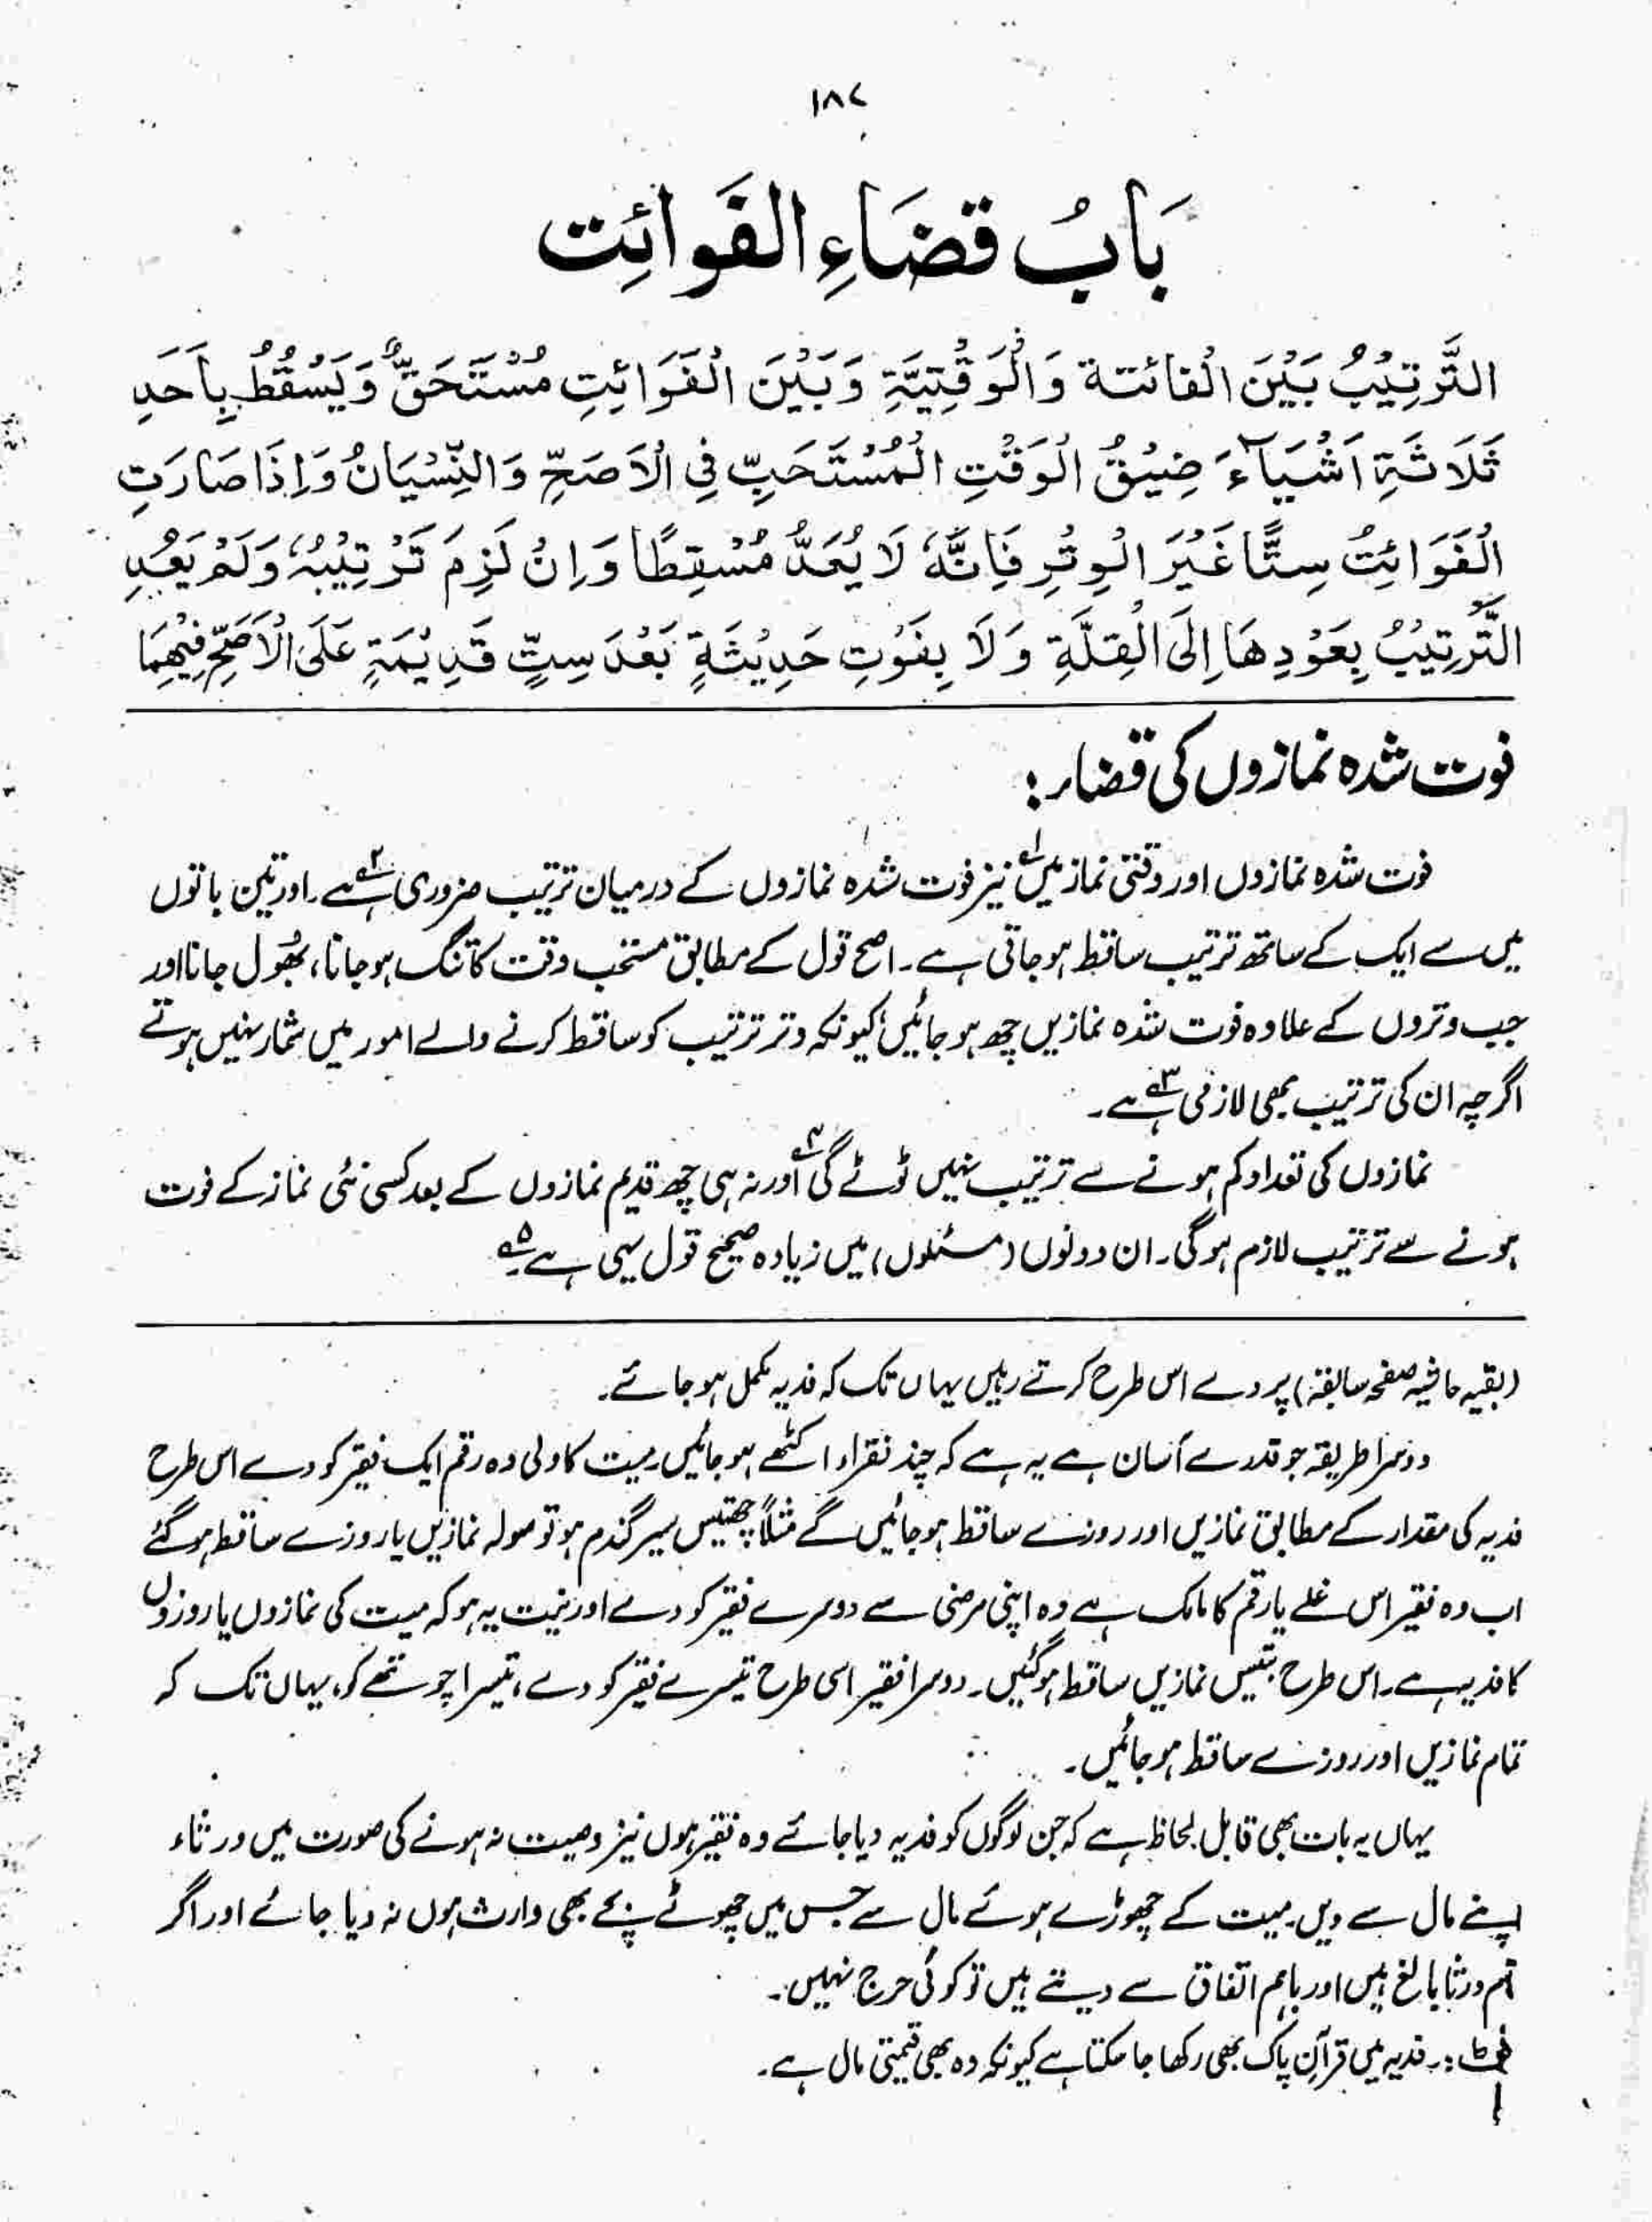 ۱۸۷
بَابُ قضَاءِ الفَوائِت
التَّرتِيْبُ بَيْنَ الْفائتة وَالْوَقْتِيَّةِ وَبَيْنَ الْفَوَائِتِ مُسْتَحَقٌّ وَيَسْقُطُ بِاَحَدِ
ثَلَاثَةِ اَشْيَآءَ ضِيْقُ الْوَقْتِ الْمُسْتَحَبِّ فِي الْاَصَحِّ وَالنِّسْيَانُ وَاِذَا صَارَتِ
الْفَوَائِتُ سِتًّا غَيْرَ الْوِتْرِ فَاِنَّهٗ لَا يُعَدُّ مُسْقِطًا وَاِنْ لَزِمَ تَرْتِيْبُهٗ وَلَمْ يَعُدِ
التَّرتِيْبُ بِعَوْدِهَا اِلَى الْقِلَّةِ وَلَا بِفَوْتِ حَدِيْثَةٍ بَعْدَ سِتٍّ قَدِيْمَةٍ عَلَى الْاَصَحِّ فِيْهِمَا
فوت شدہ نمازوں کی قضاء :
فوت شدہ نمازوں اور وقتی نماز میں۱ نیز فوت شدہ نمازوں کے درمیان ترتیب ضروری ہے۲۔ اور تین باتوں
میں سے ایک کے ساتھ ترتیب ساقط ہوجاتی ہے۔ اصح قول کے مطابق مستحب وقت کا تنگ ہوجانا، بھُول جانا اور
جب وتروں کے علاوہ فوت شدہ نمازیں چھ ہو جائیں؛ کیونکہ وتر ترتیب کو ساقط کرنے والے امور میں شمار نہیں ہوتے
اگرچہ ان کی ترتیب بھی لازمی ہے۳۔
نمازوں کی تعداد کم ہونے سے ترتیب نہیں ٹوٹے گی۴ اور نہ ہی چھ قدیم نمازوں کے بعد کسی نئی نماز کے فوت
ہونے سے ترتیب لازم ہوگی۔ ان دونوں (مسئلوں) میں زیادہ صحیح قول یہی ہے۵۔
(بقیہ حاشیہ صفحہ سابقہ) پر دے اس طرح کرتے رہیں یہاں تک کہ فدیہ مکمل ہو جائے۔
دوسرا طریقہ جو قدرے آسان ہے یہ ہے کہ چند فقراء اکٹھے ہو جائیں۔ میت کا ولی وہ رقم ایک فقیر کو دے اس طرح
فدیہ کی مقدار کے مطابق نمازیں اور روزے ساقط ہوجائیں گے مثلاً چھتیس سیر گندم ہو تو سولہ نمازیں یا روزے ساقط ہوگئے
اب وہ فقیر اس غلے یا رقم کا مالک ہے وہ اپنی مرضی سے دوسرے فقیر کو دے اور نیت یہ ہو کہ میت کی نمازوں یا روزوں
کا فدیہ ہے۔ اس طرح بتیس نمازیں ساقط ہوگئیں۔ دوسرا فقیر اسی طرح تیسرے فقیر کو دے، تیسرا چوتھے کو، یہاں تک کہ
تمام نمازیں اور روزے ساقط ہو جائیں۔
یہاں یہ بات بھی قابل لحاظ ہے کہ جن لوگوں کو فدیہ دیا جائے وہ فقیر ہوں نیز وصیت نہ ہونے کی صورت میں ورثاء
اپنے مال سے دیں۔ میت کے چھوڑے ہوئے مال سے جس میں چھوٹے بچے بھی وارث ہوں نہ دیا جائے اور اگر
تم ورثا بالغ ہیں اور باہم اتفاق سے دیتے ہیں تو کوئی حرج نہیں۔
نوٹ :۔ فدیہ میں قرآن پاک بھی رکھا جا سکتا ہے کیونکہ وہ بھی قیمتی مال ہے۔